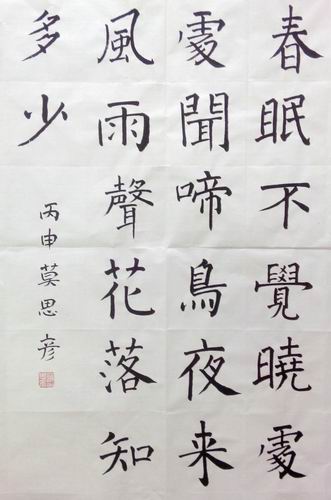 春眠不覺曉處
處聞啼鳥夜来
風雨聲花落知
多少
丙申莫思彦